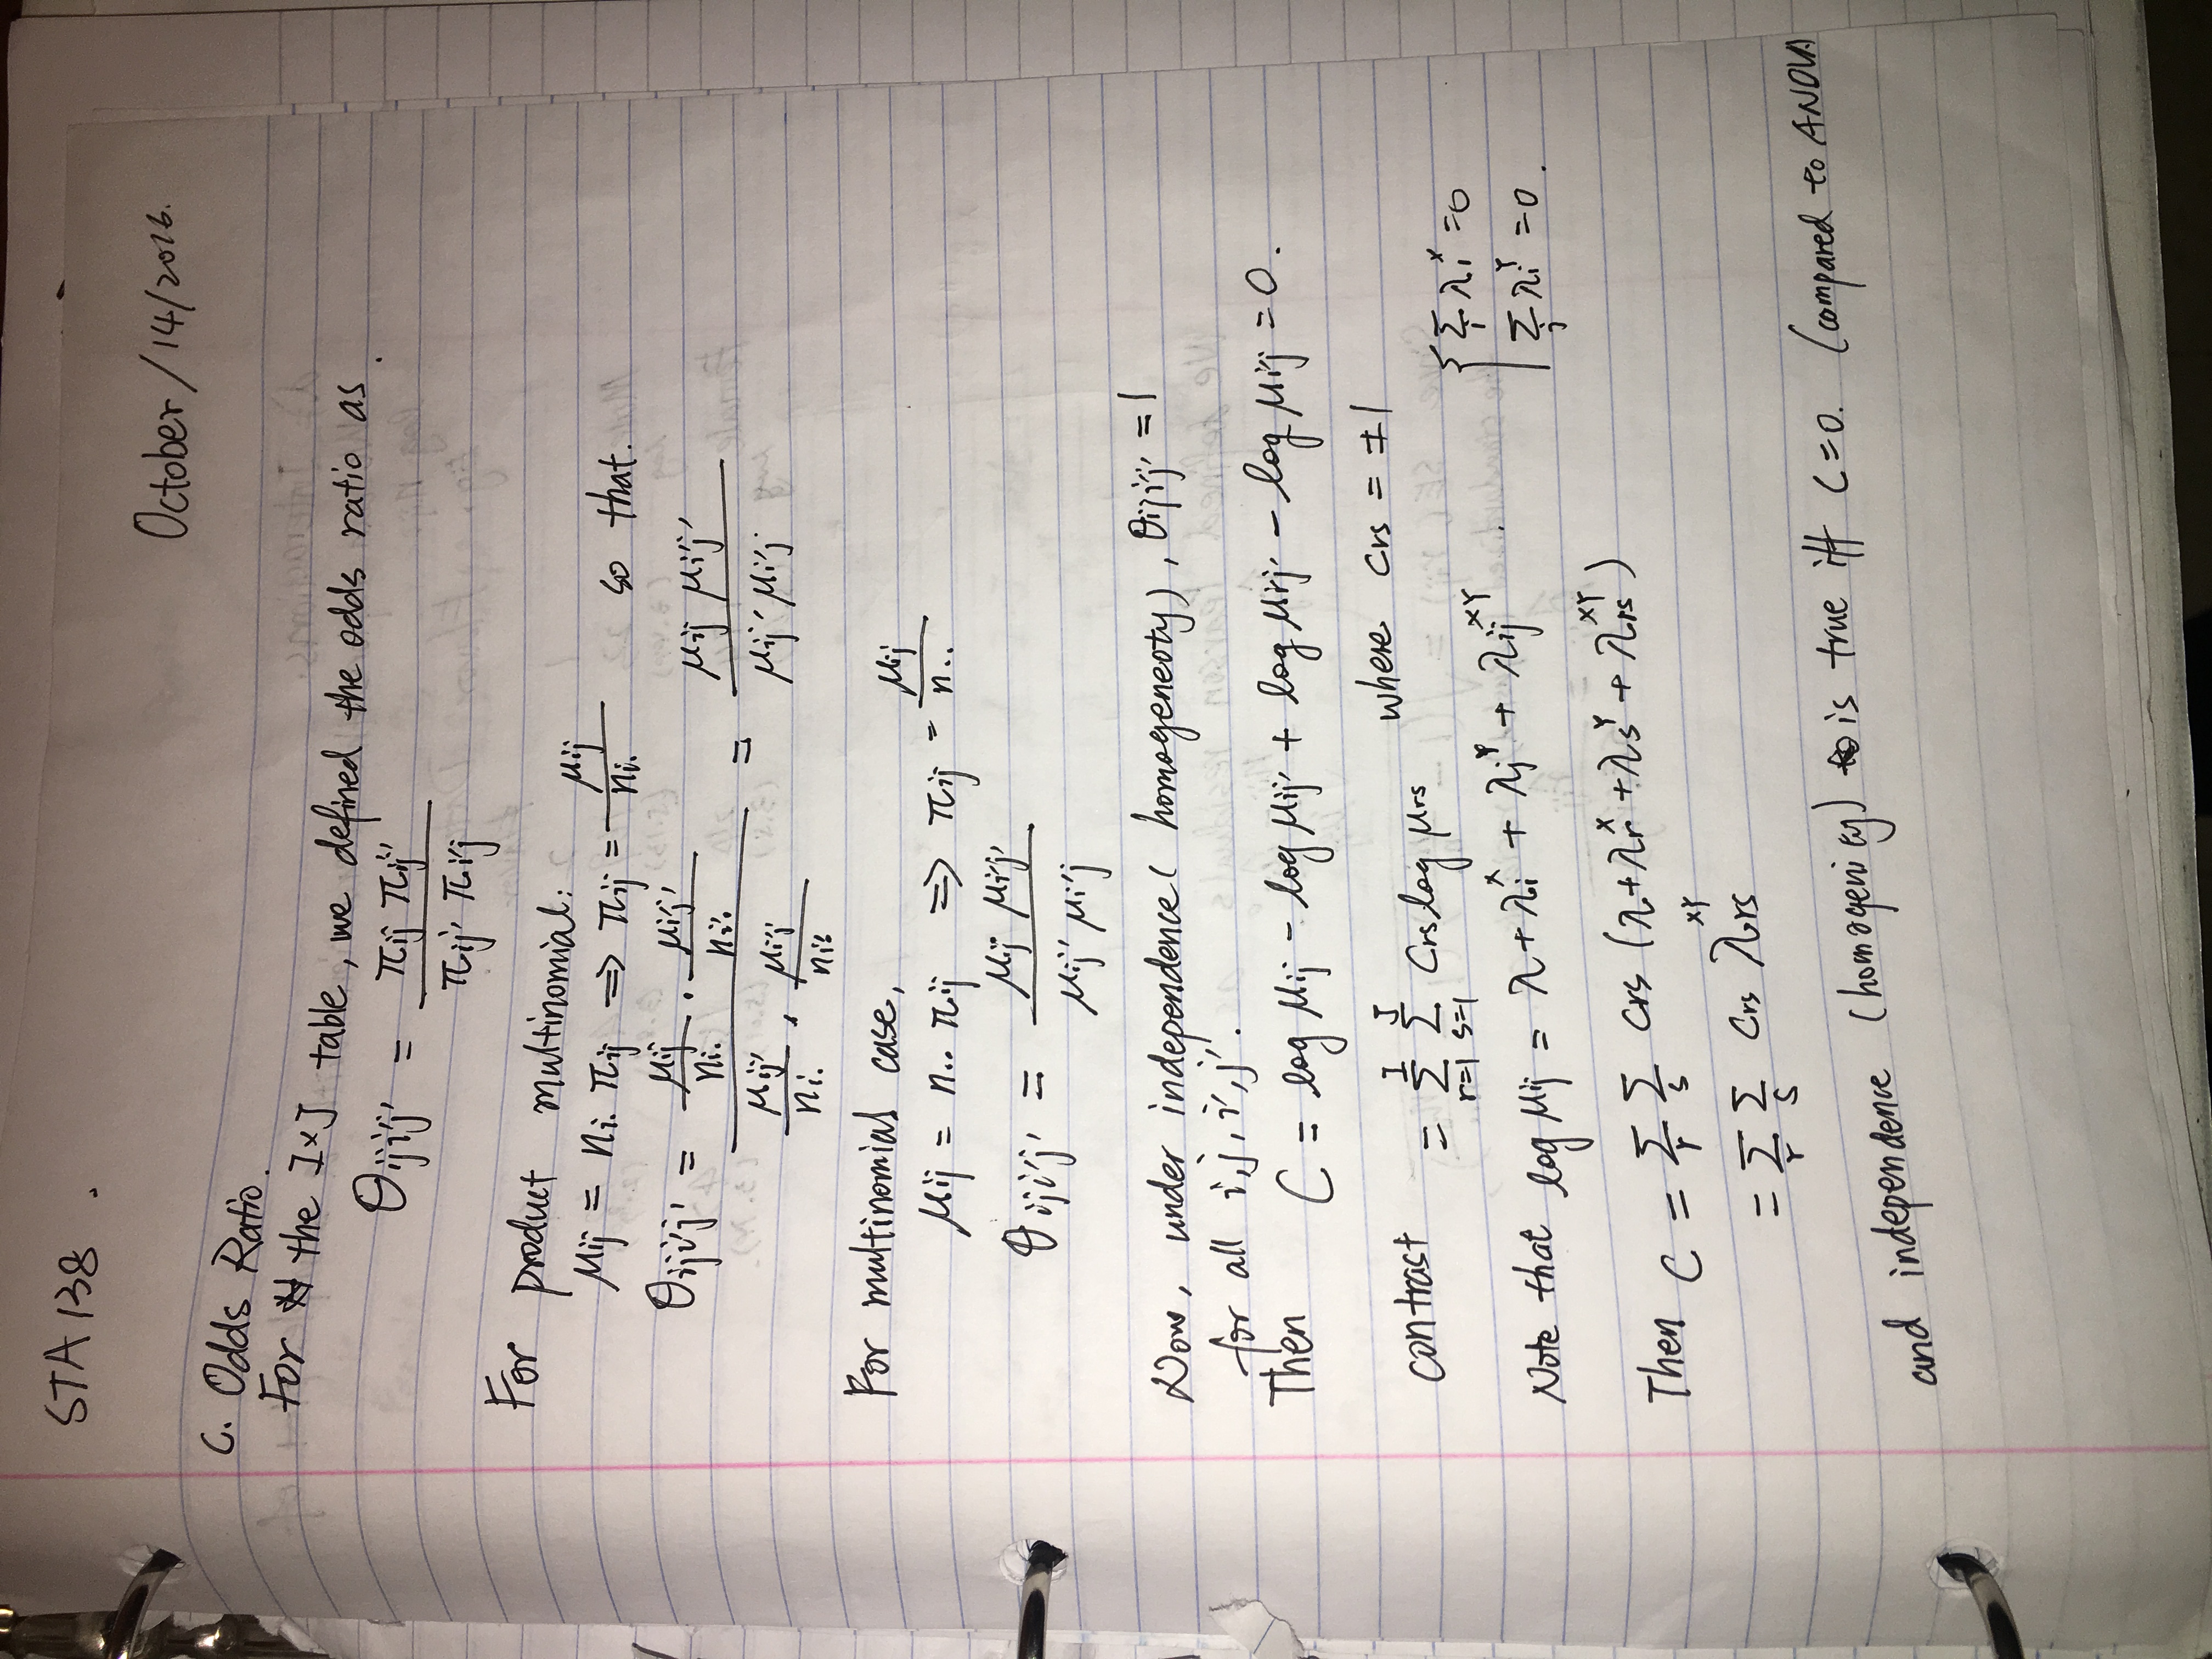 STA 138 .
October / 14/2016.
C. Odds Ratio.
For the I×J table, we defined the odds ratio as .
θiji'j' = πij πi'j' / πij' πi'j
For product multinomial:
μij = ni. πij ⟹ πij = μij / ni. so that.
θiji'j' = (μij / ni. · μi'j' / ni'.) / (μij' / ni. · μi'j / ni'.) = μij μi'j' / μij' μi'j
For multinomial case,
μij = n.. πij ⟹ πij = μij / n..
θiji'j' = μij μi'j' / μij' μi'j
Now, under independence( homogeneoty), θiji'j' = 1
for all i,j,i',j'.
Then C = log μij - log μij' + log μi'j' - log μi'j = 0.
contrast = Σ_{r=1}^{I} Σ_{s=1}^{J} Crs log μrs where crs = ±1
Note that log μij = λ + λi^X + λj^Y + λij^XY . { Σ_i λi^X = 0
Σ_j λi^Y = 0.
Then C = Σ_r Σ_s crs (λ+λr^X +λs^Y + λrs^XY)
= Σ_r Σ_s crs λrs^XY
and independence (homogenity) is true iff C=0. (compared to ANOVA